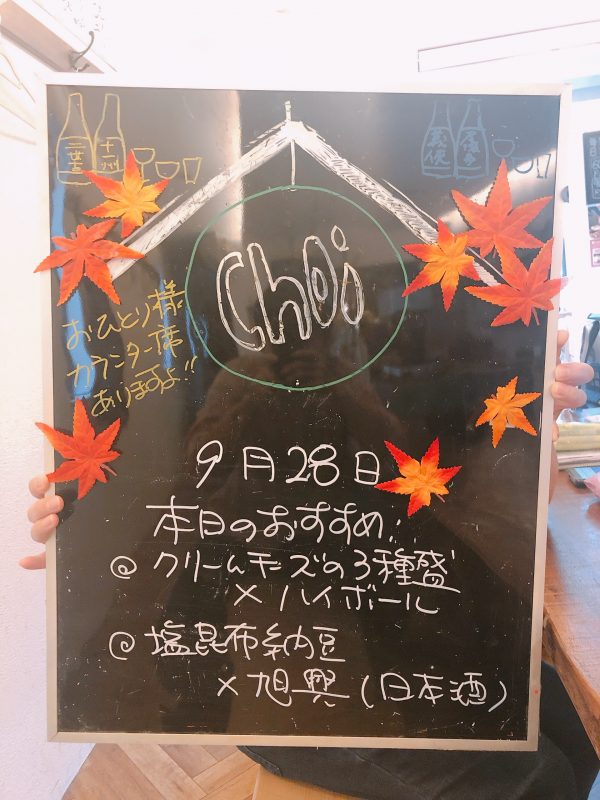 十州
Choi
おひとり様
カウンター席
ありますよ!!
9月28日
本日のおすすめ:
@ クリームチーズの3種盛
× ハイボール
@ 塩昆布納豆
× 旭興(日本酒)